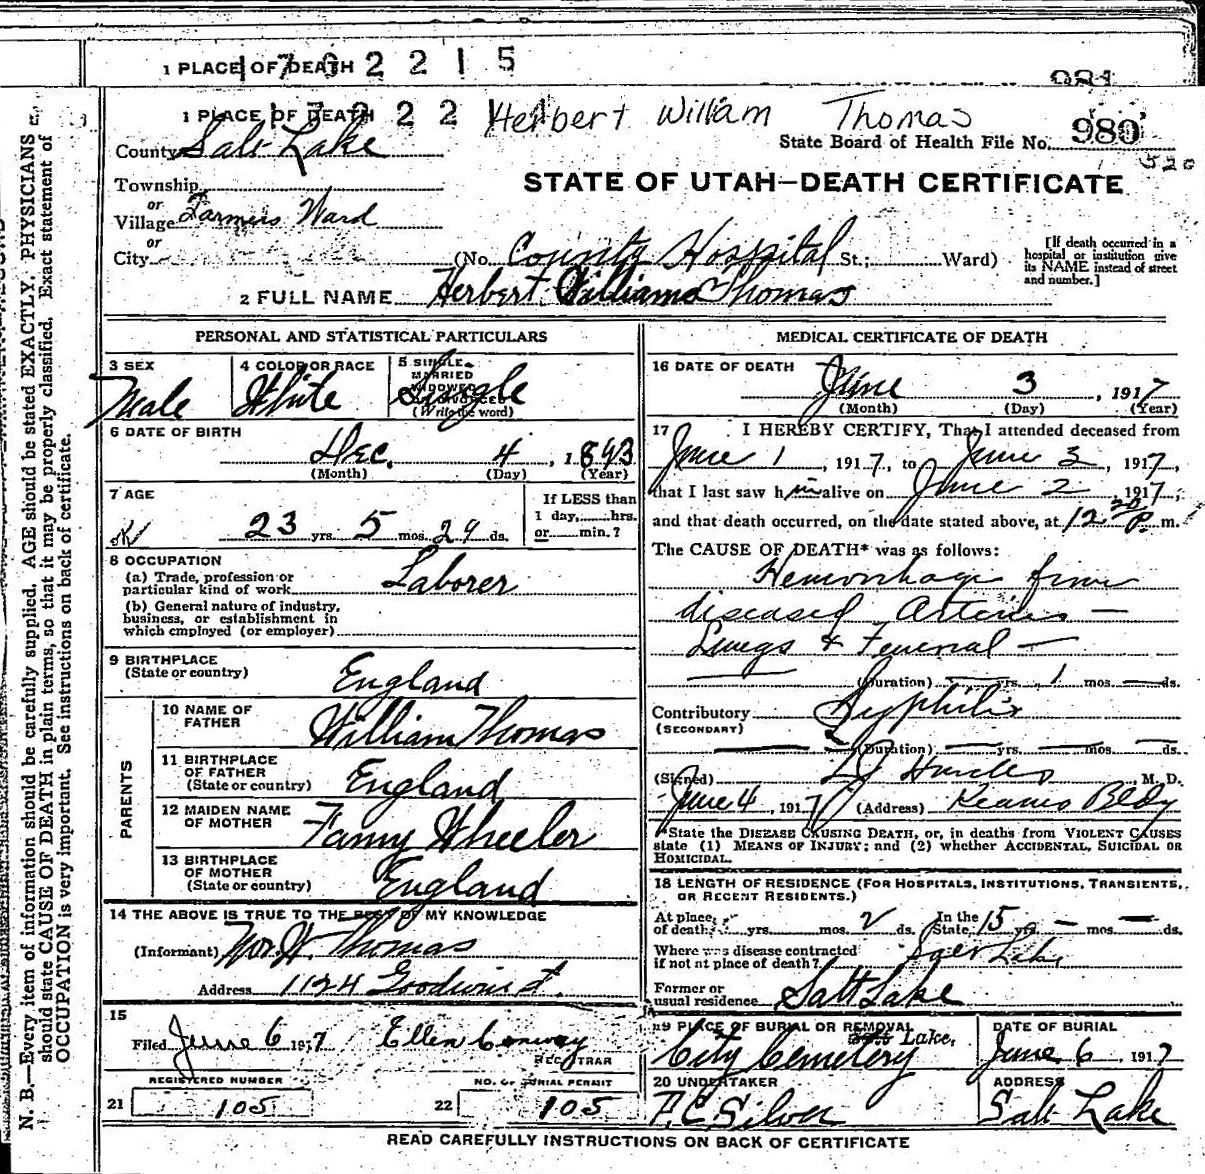 1 PLACE OF DEATH
2 2 1 5
981
1 PLACE OF DEATH
2 2
Herbert William Thomas
State Board of Health File No. 980
County Salt Lake
520
Township
STATE OF UTAH—DEATH CERTIFICATE
or
Village Farmers Ward
or
City
(No. County Hospital St.; Ward)
[If death occurred in a
hospital or institution give
its NAME instead of street
and number.]
2 FULL NAME Herbert Williams Thomas
PERSONAL AND STATISTICAL PARTICULARS
3 SEX
Male
4 COLOR OR RACE
White
5 SINGLE
MARRIED
WIDOWED
Single
(Write the word)
6 DATE OF BIRTH
Dec. 4, 1893
(Month) (Day) (Year)
7 AGE
23 yrs. 5 mos. 29 ds.
If LESS than
1 day, hrs.
or min.?
8 OCCUPATION
(a) Trade, profession or
particular kind of work Laborer
(b) General nature of industry,
business, or establishment in
which employed (or employer)
9 BIRTHPLACE
(State or country) England
PARENTS
10 NAME OF
FATHER William Thomas
11 BIRTHPLACE
OF FATHER
(State or country) England
12 MAIDEN NAME
OF MOTHER Fanny Wheeler
13 BIRTHPLACE
OF MOTHER
(State or country) England
14 THE ABOVE IS TRUE TO THE BEST OF MY KNOWLEDGE
(Informant) Wm. H. Thomas
Address 1124 Goodwin St.
15
Filed June 6 1917 Ellen Conway
REGISTRAR
REGISTERED NUMBER
21 105
NO. OF BURIAL PERMIT
22 105
MEDICAL CERTIFICATE OF DEATH
16 DATE OF DEATH
June 3, 1917
(Month) (Day) (Year)
17 I HEREBY CERTIFY, That I attended deceased from
June 1, 1917, to June 3, 1917,
that I last saw him alive on June 2 1917;
and that death occurred, on the date stated above, at 12 P m.
The CAUSE OF DEATH* was as follows:
Hemorrhage from
diseased Arteries —
Lungs & Femoral —
(Duration) — yrs. 1 mos. — ds.
Contributory Syphilis
(SECONDARY)
(Duration) — yrs. — mos. — ds.
(Signed) M. D.
June 4, 1917 (Address) Kearns Bldg
*State the DISEASE CAUSING DEATH, or, in deaths from VIOLENT CAUSES
state (1) MEANS OF INJURY; and (2) whether ACCIDENTAL, SUICIDAL OR
HOMICIDAL.
18 LENGTH OF RESIDENCE (FOR HOSPITALS, INSTITUTIONS, TRANSIENTS,
OR RECENT RESIDENTS.)
At place
of death yrs. mos. 2 ds. In the State 15 yrs. — mos. — ds.
Where was disease contracted
if not at place of death? Lake
Former or
usual residence Salt Lake
19 PLACE OF BURIAL OR REMOVAL
Lake,
City Cemetery
DATE OF BURIAL
June 6, 1917
20 UNDERTAKER
ADDRESS
Salt Lake
READ CAREFULLY INSTRUCTIONS ON BACK OF CERTIFICATE
N. B.—Every item of information should be carefully supplied. AGE should be stated EXACTLY. PHYSICIANS
should state CAUSE OF DEATH in plain terms, so that it may be properly classified. Exact statement of
OCCUPATION is very important. See instructions on back of certificate.